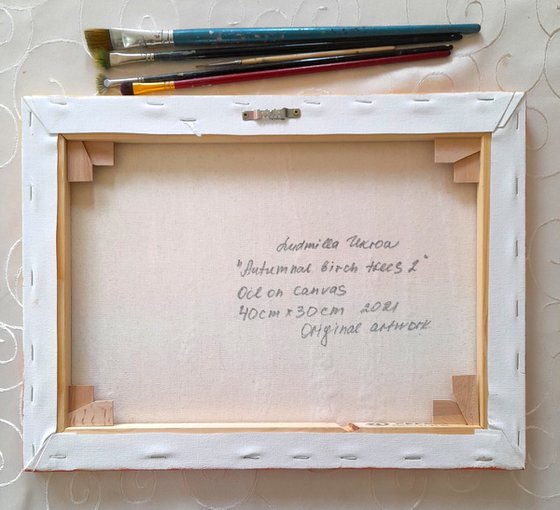 Ludmilla Ukrow
"Autumnal birch trees 2"
Oil on canvas
40cm x 30cm 2021
Original artwork